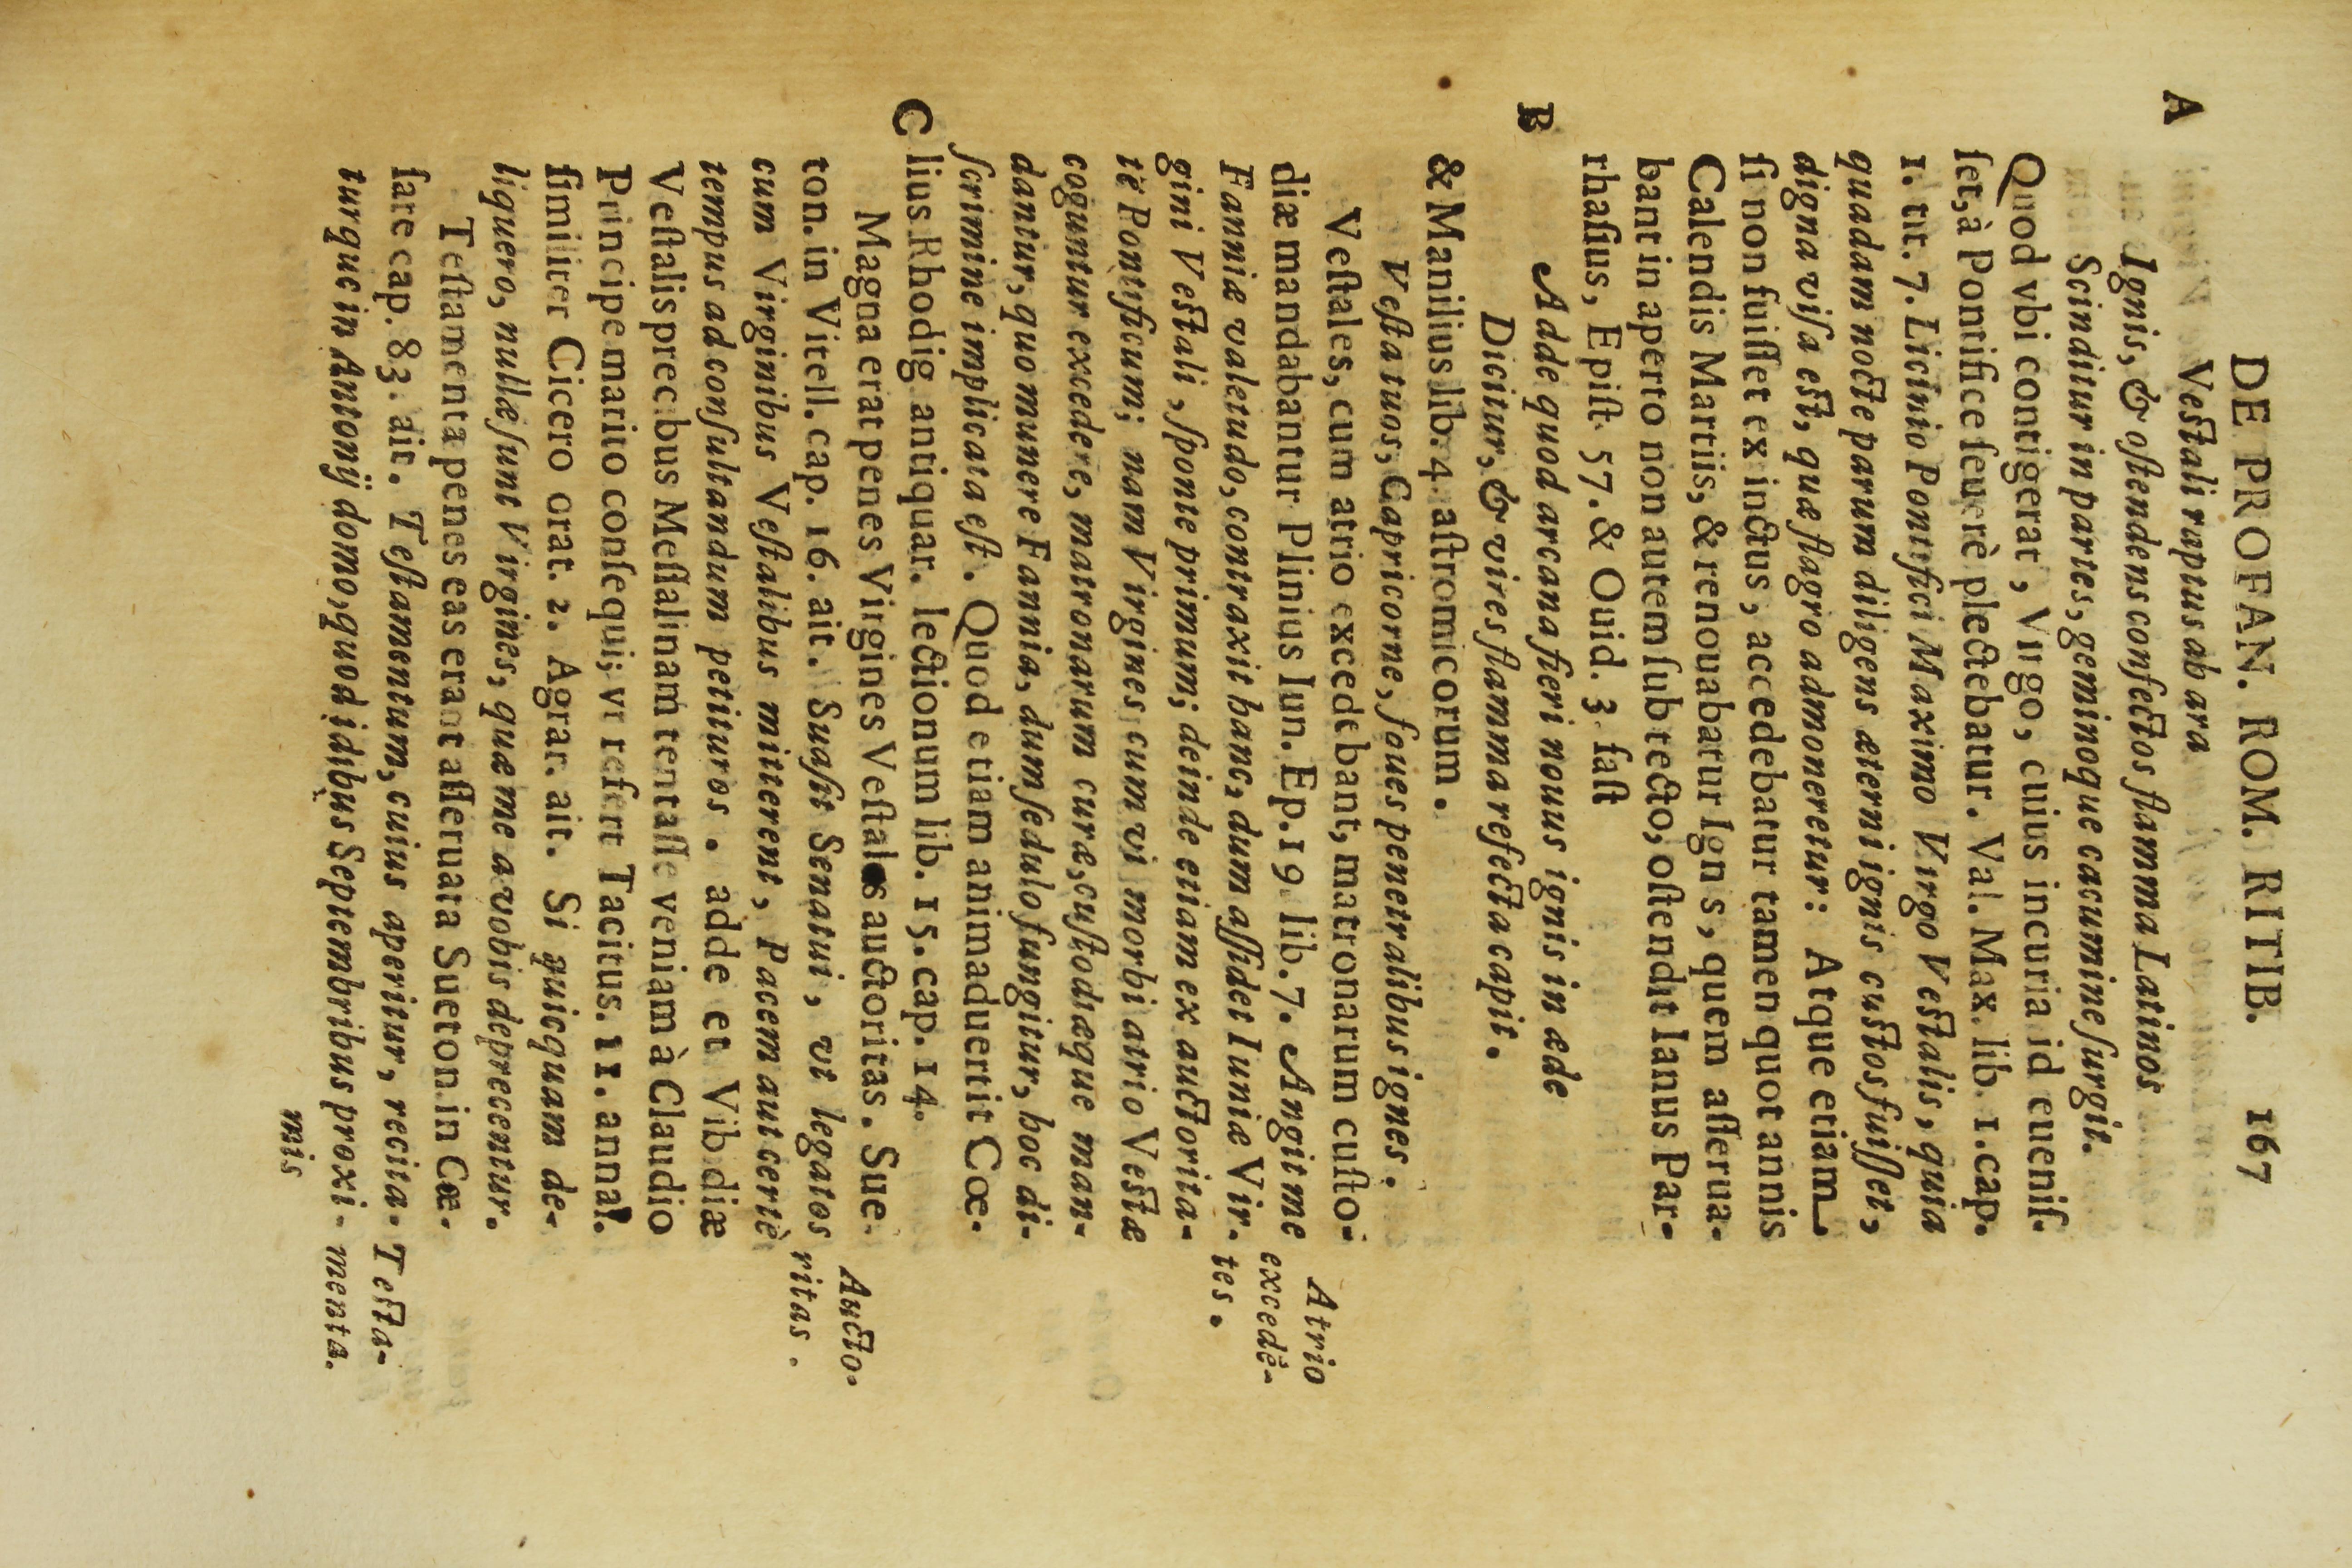 DE PROFAN. ROM. RITIB. 167
Veſtali raptus ab ara
A Ignis, & oſtendens confectos flamma Latinos
Scinditur in partes, geminoque cacumine ſurgit.
Quod vbi contigerat, Virgo, cuius incuria id eueniſ-
ſet, à Pontifice ſeuerè plectebatur. Val. Max. lib. 1. cap.
1. tit. 7. Licinio Pontifici Maximo Virgo Veſtalis, quia
quadam nocte parum diligens æterni ignis cuſtos fuiſſet,
digna viſa eſt, quæ flagro admoneretur: Atque etiam
ſi non fuiſſet extinctus, accedebatur tamen quot annis
Calendis Martiis, & renouabatur Ignis, quem aſſerua-
bant in aperto non autem ſub tecto, oſtendit Ianus Par-
rhaſius, Epiſt. 57. & Ouid. 3 faſt
B Adde quod arcana fieri nouus ignis in æde
Dicitur, & vires flamma refecta capit.
& Manilius lib. 4. aſtromicorum.
Veſta tuos, Capricorne, foues penetralibus ignes.
Veſtales, cum atrio excedebant, matronarum cuſto-
diæ mandabantur Plinius Iun. Ep. 19. lib. 7. Angit me
Fanniæ valetudo, contraxit hanc, dum aſſidet Iuniæ Vir-
gini Veſtali, ſponte primum; deinde etiam ex auctorita-
te Pontificum; nam Virgines cum vi morbi atrio Veſtæ
coguntur excedere, matronarum curæ, cuſtodiæque man-
dantur, quo munere Fannia, dum ſedulo fungitur, hoc di-
ſcrimine implicata eſt. Quod etiam animaduertit Cœ-
C lius Rhodig antiquar. lectionum lib. 15. cap. 14.
Magna erat penes Virgines Veſtales auctoritas. Sue-
ton. in Vitell. cap. 16. ait. Suaſit Senatui, vt legatos
cum Virginibus Veſtalibus mitterent, Pacem aut certè
tempus ad conſultandum petituros. adde et Vibdiæ
Veſtalis precibus Meſſalinam tentaſſe veniam à Claudio
Principe marito conſequi; vt refert Tacitus. 11. annal.
ſimiliter Cicero orat. 2. Agrar. ait. Si quicquam de-
liquero, nullæ ſunt Virgines, quæ me a vobis deprecentur.
Teſtamenta penes eas erant aſſeruata Sueton. in Cæ-
ſare cap. 83. ait. Teſtamentum, cuius aperitur, recita-
turque in Antonij domo, quod idibus Septembribus proxi-
mis
Atrio
excedē-
tes.
Aucto-
ritas.
Teſta-
menta.